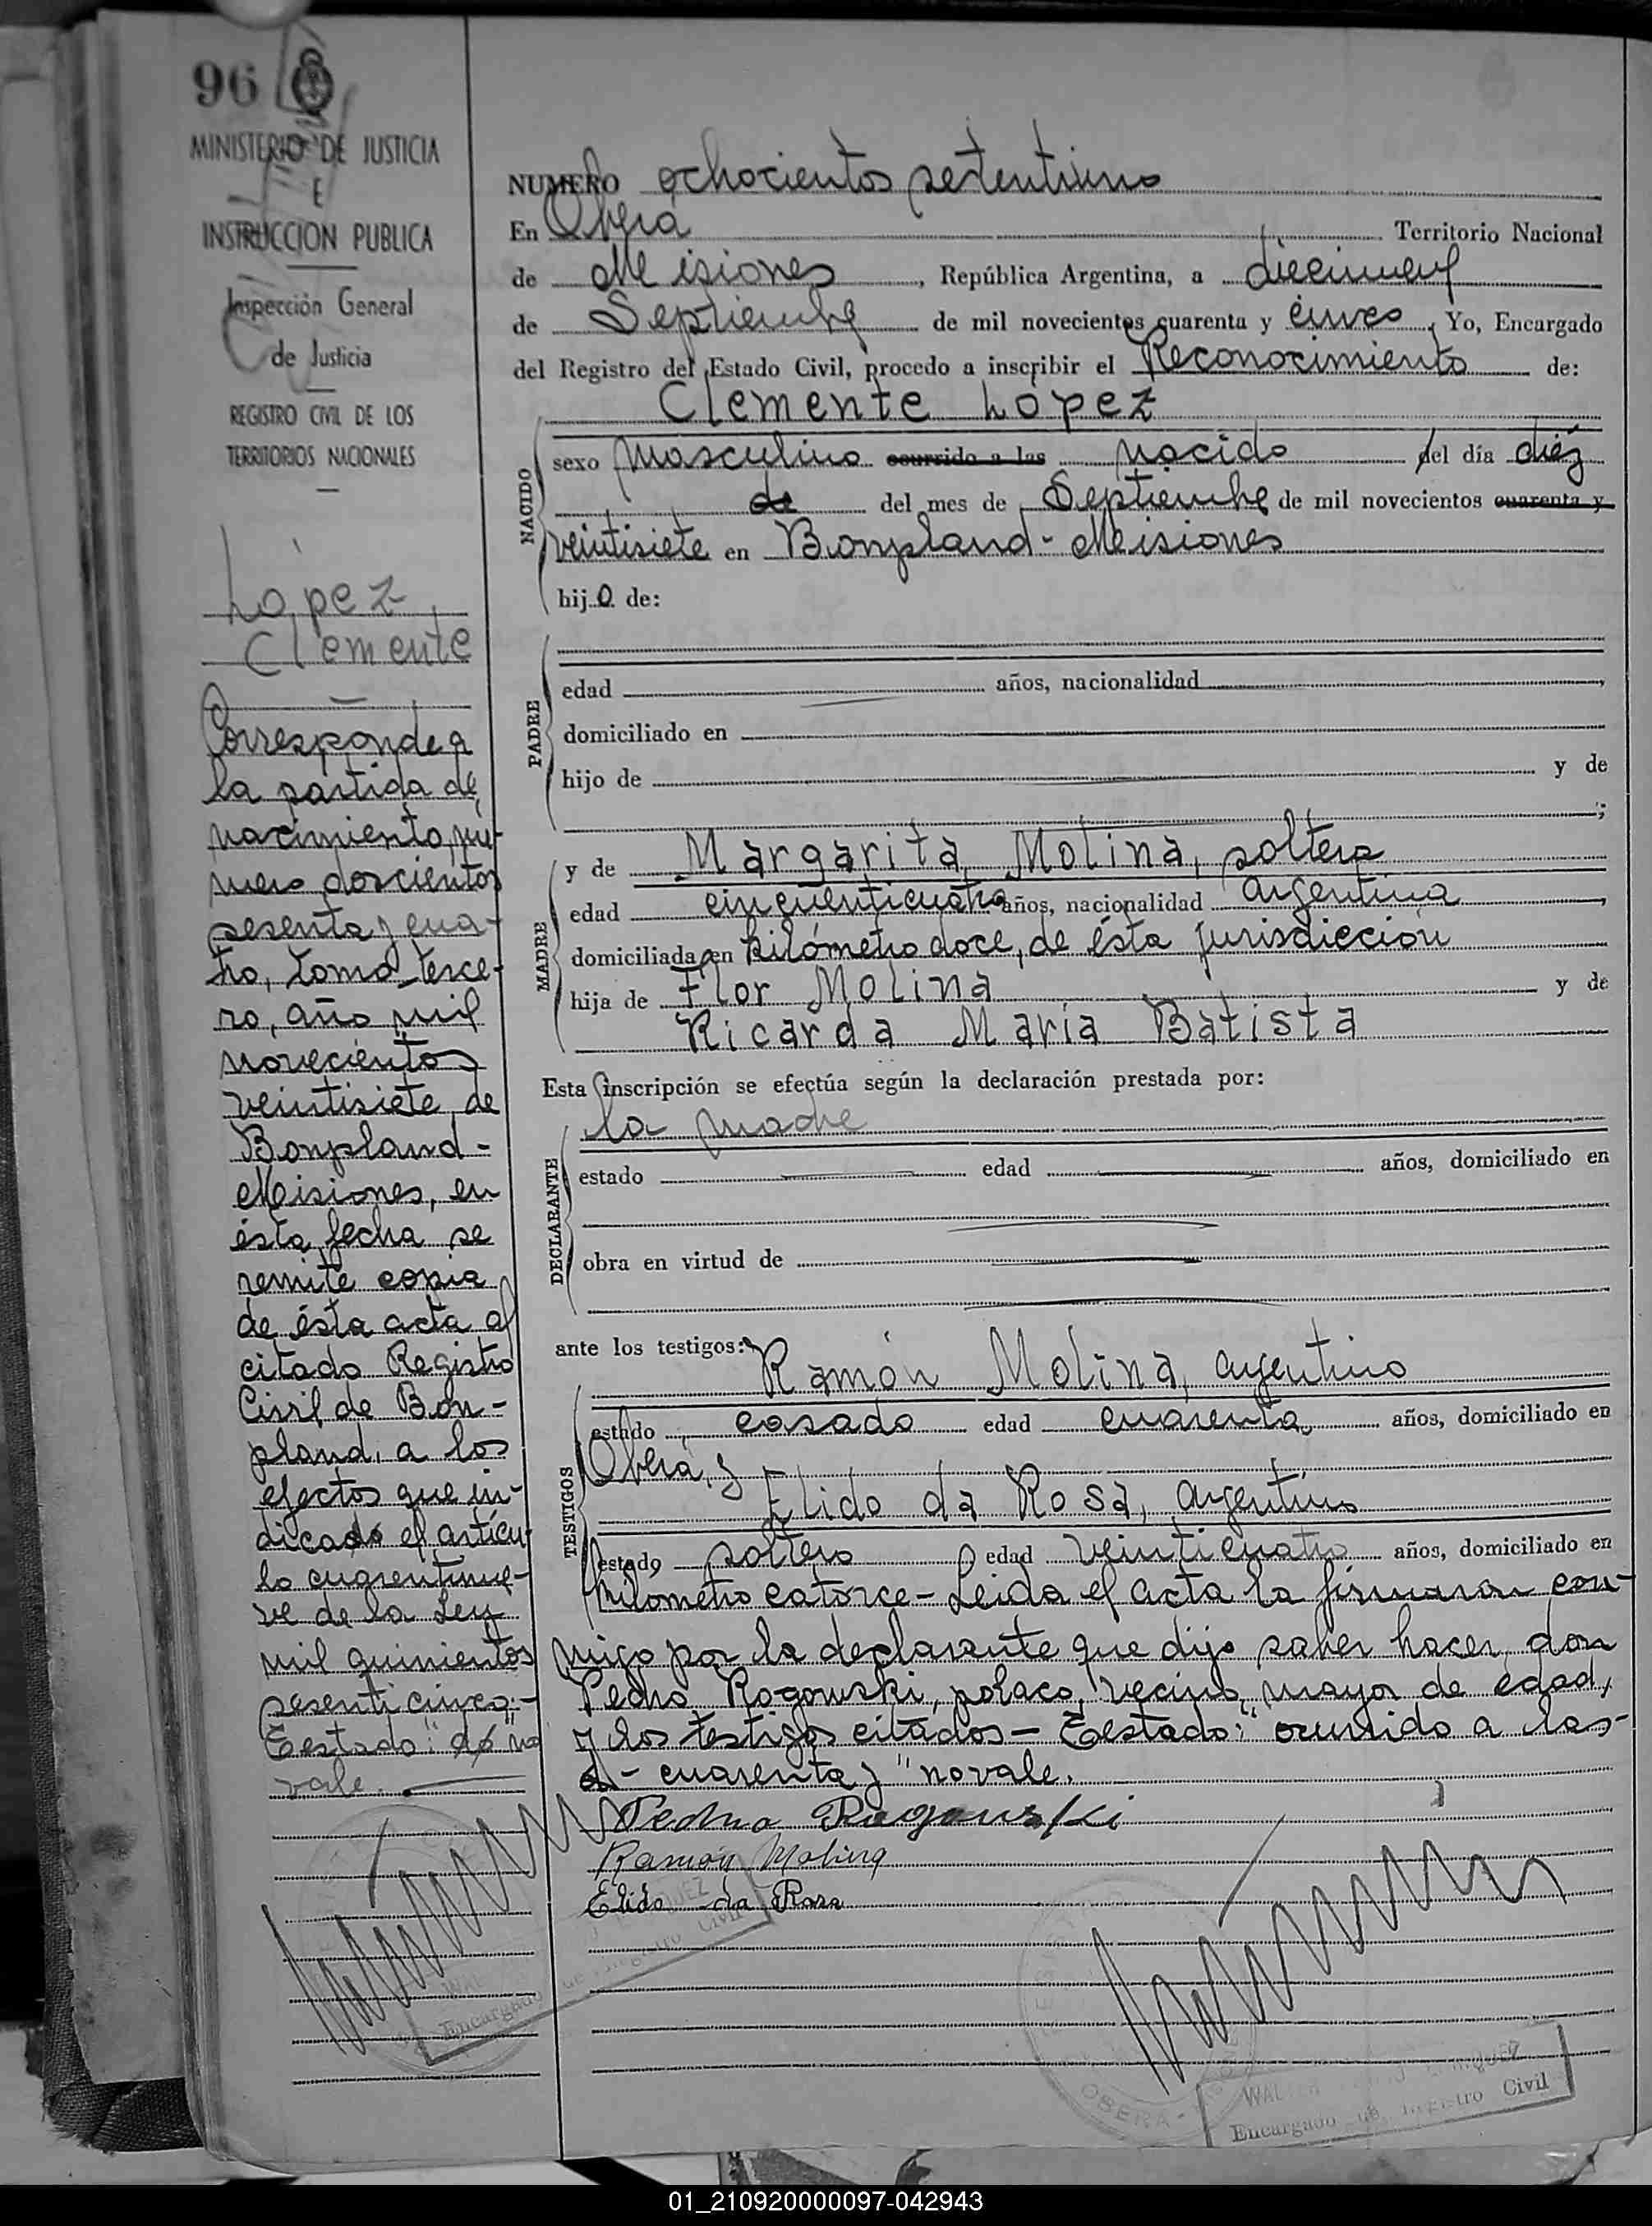 96
MINISTERIO DE JUSTICIA
E
INSTRUCCION PUBLICA
Inspección General
de Justicia
REGISTRO CIVIL DE LOS
TERRITORIOS NACIONALES
Lopez,
Clemente
Corresponde a
la partida de
nacimiento nú-
mero doscientos
sesenta y cua-
tro, tomo terce-
ro, año mil
novecientos
veintisiete de
Bonpland-
Misiones, en
ésta fecha se
remite copia
de ésta acta al
citado Registro
Civil de Bon-
pland, a los
efectos que in-
dicado el artícu-
lo cuarentinue-
ve de la Ley
mil quinientos
sesenticinco.-
Testado: "do" no
vale.
NUMERO ochocientos setentiuno
En Oberá Territorio Nacional
de Misiones, República Argentina, a diecinueve
de Septiembre de mil novecientos cuarenta y cinco, Yo, Encargado
del Registro del Estado Civil, procedo a inscribir el Reconocimiento de:
Clemente Lopez
NACIDO
sexo masculino ocurrido a las nacido del día diéz
de del mes de Septiembre de mil novecientos cuarenta y
veintisiete en Bonpland-Misiones
hijo de:
PADRE
edad años, nacionalidad
domiciliado en
hijo de y de
;
MADRE
y de Margarita Molina, soltera
edad cincuenticuatro años, nacionalidad argentina,
domiciliada en kilómetro doce, de ésta jurisdicción
hija de Flor Molina y de
Ricarda María Batista
Esta inscripción se efectúa según la declaración prestada por:
DECLARANTE
la madre
estado edad años, domiciliado en
obra en virtud de
ante los testigos:
TESTIGOS
Ramón Molina, argentino
estado casado edad cuarenta, años, domiciliado en
Oberá, y
Elido da Rosa, argentino
estado soltero edad veinticuatro años, domiciliado en
kilometro catorce- Leida el acta la firmaron con-
migo por la declarante que dijo saber hacer, don
Pedro Rogowski, polaco, vecino, mayor de edad,
y los testigos citados- Testado: "ocurrido a las-
d- cuarenta y" no vale.
Pedro Rogowski
Ramón Molina
Elido da Rosa
Encargado de Registro Civil
OBERA-
Encargado de Registro Civil
01_210920000097-042943